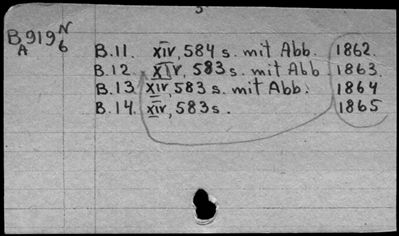 B 919 N
A 6
B.11. XIV, 584 s. mit Abb. 1862.
B.12. XIV, 583 s. mit Abb 1863.
B.13. XIV, 583 s. mit Abb. 1864
B.14. XIV, 583 s. 1865